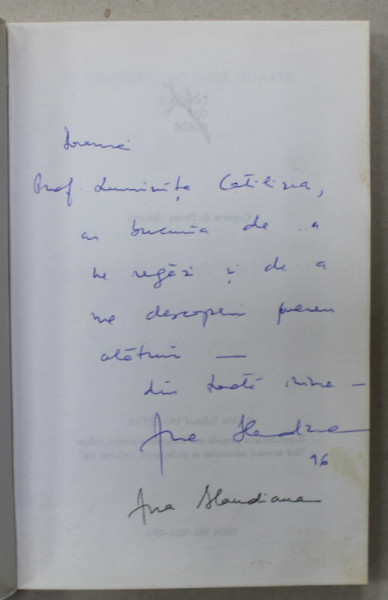 Doamnei
Prof. Luminița Cătălina,
cu bucuria de a
ne regăsi și de a
ne descoperi mereu
alături —
din toată inima —
Ana Blandiana
96
Ana Blandiana